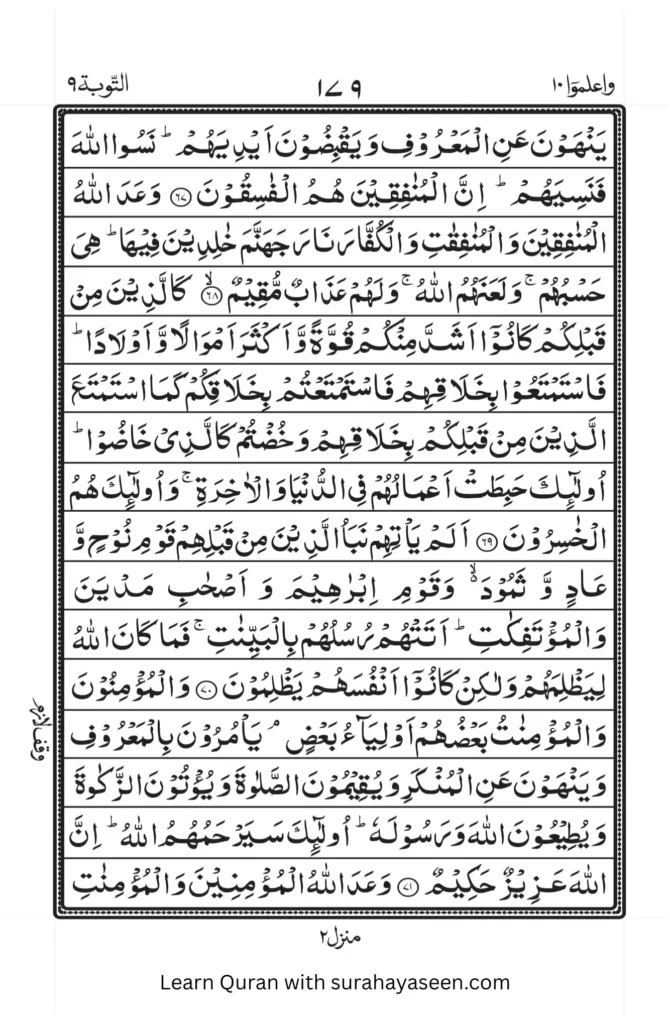 واعلموٓا ١٠ ١٧٩ التّوبة ٩
يَنْهَوْنَ عَنِ الْمَعْرُوْفِ وَيَقْبِضُوْنَ اَيْدِيَهُمْ ؕ نَسُوا اللّٰهَ
فَنَسِيَهُمْ ؕ اِنَّ الْمُنٰفِقِيْنَ هُمُ الْفٰسِقُوْنَ ﴿٦٧﴾ وَعَدَ اللّٰهُ
الْمُنٰفِقِيْنَ وَالْمُنٰفِقٰتِ وَالْكُفَّارَ نَارَ جَهَنَّمَ خٰلِدِيْنَ فِيْهَا ؕ هِىَ
حَسْبُهُمْ ۚ وَلَعَنَهُمُ اللّٰهُ ۚ وَلَهُمْ عَذَابٌ مُّقِيْمٌ ﴿٦٨﴾ۙ كَالَّذِيْنَ مِنْ
قَبْلِكُمْ كَانُوْٓا اَشَدَّ مِنْكُمْ قُوَّةً وَّاَكْثَرَ اَمْوَالًا وَّاَوْلَادًا ؕ
فَاسْتَمْتَعُوْا بِخَلَاقِهِمْ فَاسْتَمْتَعْتُمْ بِخَلَاقِكُمْ كَمَا اسْتَمْتَعَ
الَّذِيْنَ مِنْ قَبْلِكُمْ بِخَلَاقِهِمْ وَخُضْتُمْ كَالَّذِىْ خَاضُوْا ؕ
اُولٰٓئِكَ حَبِطَتْ اَعْمَالُهُمْ فِى الدُّنْيَا وَالْاٰخِرَةِ ۚ وَاُولٰٓئِكَ هُمُ
الْخٰسِرُوْنَ ﴿٦٩﴾ اَلَمْ يَاْتِهِمْ نَبَاُ الَّذِيْنَ مِنْ قَبْلِهِمْ قَوْمِ نُوْحٍ وَّ
عَادٍ وَّ ثَمُوْدَ ۙ۬ وَقَوْمِ اِبْرٰهِيْمَ وَ اَصْحٰبِ مَدْيَنَ
وَالْمُؤْتَفِكٰتِ ؕ اَتَتْهُمْ رُسُلُهُمْ بِالْبَيِّنٰتِ ۚ فَمَا كَانَ اللّٰهُ
لِيَظْلِمَهُمْ وَلٰكِنْ كَانُوْٓا اَنْفُسَهُمْ يَظْلِمُوْنَ ﴿٧٠﴾ وَالْمُؤْمِنُوْنَ
وَالْمُؤْمِنٰتُ بَعْضُهُمْ اَوْلِيَآءُ بَعْضٍ ۘ يَاْمُرُوْنَ بِالْمَعْرُوْفِ
وَيَنْهَوْنَ عَنِ الْمُنْكَرِ وَيُقِيْمُوْنَ الصَّلٰوةَ وَيُؤْتُوْنَ الزَّكٰوةَ
وَيُطِيْعُوْنَ اللّٰهَ وَرَسُوْلَهٗ ؕ اُولٰٓئِكَ سَيَرْحَمُهُمُ اللّٰهُ ؕ اِنَّ
اللّٰهَ عَزِيْزٌ حَكِيْمٌ ﴿٧١﴾ وَعَدَ اللّٰهُ الْمُؤْمِنِيْنَ وَالْمُؤْمِنٰتِ
وقف لازم
منزل ٢
Learn Quran with surahayaseen.com